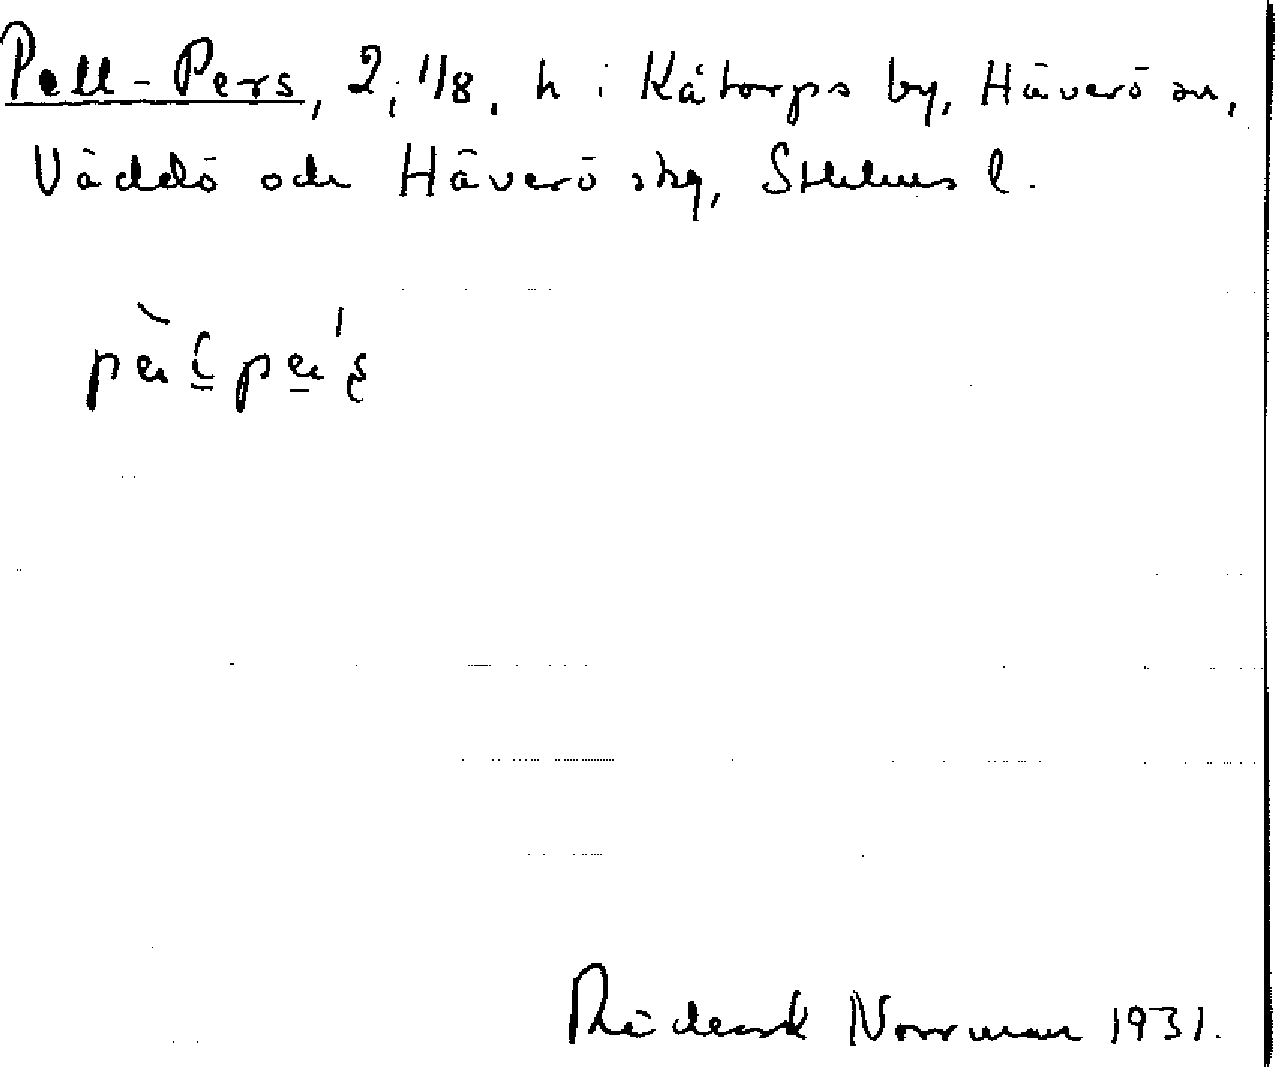 Pell-Pers, 2, 1/8, h i Kåtorps by, Häverö sn,
Väddö och Häverö skg, Sthlms l.
Norrman 1931.